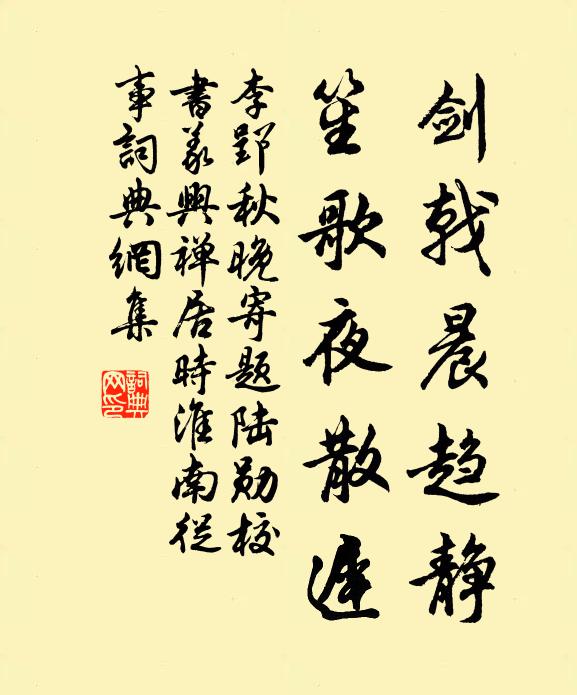 剑戟晨趋静
笙歌夜散遲
李郢秋晚寄题陆勋校
書義興禅居時淮南從
事詞典網集
詞典网印